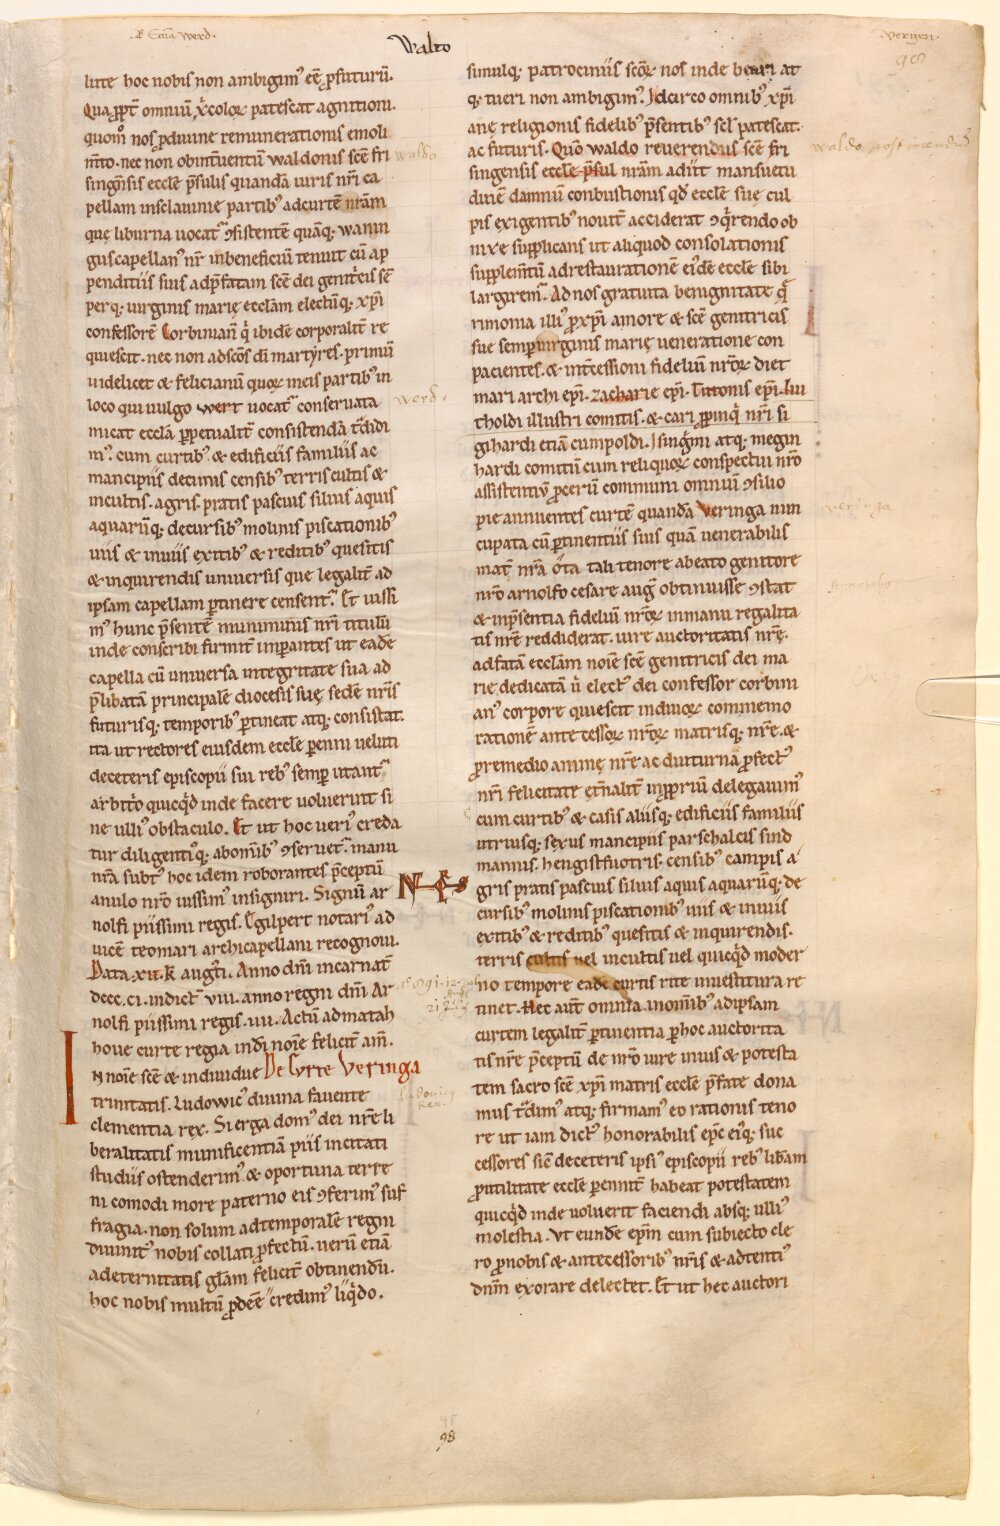 Ecclia Werd.
Walto
Veringen.
98
lute hoc nobis non ambigim᷒ ee᷑ ꝓfuturū.
Qua ꝓpt᷑ omniū xp̄icolaꝝ patescat agnitioni.
quom̊ nos ꝓ diuine remunerationis emoli
m̄to. nec non obint᷑uentū waldonis sc̄e fri
singn̄sis eccle᷑ p̄sulis quandā iuris nr̄i ca
pellam insclauinie partib᷒ ad curtē nr̄am
que liburna uocat᷑ ꝯsistentē quāq; wanin
gus capellan᷒ nr̄ in beneficiū tenuit cū ap
penditiis suis ad p̄fatam sc̄e dei genit᷑cis sē
perq; uirginis marie ecclām electūq; xp̄i
confessorē Corbinianū q̇ ibidē corporalit᷑ re
quiescit. nec non ad sc̄os dī martyres. primū
uidelicet & felicianū quoꝝ ineis partib᷒ in
loco qui uulgo wert uocat᷑ conseruata
micat ecclā ꝑpetualit᷑ consistendā t᷑didi
m᷒. cum curtib᷒. & edificiis familiis ac
mancipiis decimis censib᷒ terris cultis &
incultis. agris. pratis pascuis siluis aquis
aquarūq; decursib᷒ molinis piscationib᷒
uiis & inuiis exitib᷒ & reditib᷒ quesitis
& inquirendis uniuersis que legalit᷑ ad
ipsam capellam ꝑtinere censent᷑. Et iussi
m᷒ hunc p̄sentē munimims nr̄i titulū
inde conscribi firmit᷑ imꝑantes ut eadē
capella cū uniuersa integritate sua ad
p̄libatam principalē diocesis sue sedē nr̄is
futurisq; temporib᷒ ꝑtineat atq; consistat.
ita ut rectores eiusdem eccle᷑ ꝑenni ueluti
de ceteris episcopii sui reb᷒ semꝑ utant᷑
arbit᷑o quicq̇d inde facere uoluerint si
ne ulli᷒ obstaculo. Et ut hoc ueri᷒ creda
tur diligenti᷒q; abom̄ib᷒ ꝯseruet᷑. manu
nr̄a subt᷒ hoc idem roborantes p̄ceptū
anulo nr̄o iussim᷒ insigniri. Signū ar
nolfi piissimi regis. Egilpert notari᷒ ad
uicē teomari archicapellani recognoui.
Data .xii. k̄ augti. Anno dn̄i incarnat᷑
dccc. ci. indict᷑ viii. anno regni dn̄i Ar
nolfi piissimi regis. uii. Actū ad matah
houe curte regia in dī noīe felicit᷑ am̄.
IN noīe sc̄e & indiuidue De Curte Veringa
trinitatis. Ludowic᷒ diuina fauente
clementia rex. Si erga dom᷒ dei nr̄e li
beralitatis munificentiā piis incitati
studiis ostenderim᷒. & oportuna terre
ni comodi more paterno eis ꝯferim᷒ suf
fragia. non solum ad temporale regni
diuinit᷒ nobis collati ꝓfectū. uerū etiā
ad eternitatis glām felicit᷑ obtinendū.
hoc nobis multū ꝓdee᷑ credim᷒ liq̇do.
waldo
Werd.
Ludovicus
Rex.
simulq; patrocinüs sc̄oꝝ nos inde beari at
q; tueri non ambigim᷒. Idcirco omnib᷒ xp̄i
ane religionis fidelib᷒ p̄sentib᷒ scł patescat.
ac futuris. Quō waldo reuerendus sc̄e fri
singensis eccle᷑ p̄sul nr̄am adiit mansuetu
dinē damnū conbustionis qd̄ eccle᷑ sue cul
pis exigentib᷒ nouit᷑ acciderat ꝯq̇rendo ob
nixe supplicans ut aliquod consolationis
supplem̄tū ad restaurationē ei᷒dē eccle᷑ sibi
largirem᷑. Ad nos gratuita benignitate q᷑
rimonia illi᷒ ꝓ xp̄i amore & sc̄e genitricis
sue semp uirginis marie ueneratione con
pacientes. & int᷑cessioni fideliū nr̄oꝝ diet
mari archi epi. zacharie epi. Tuttonis epi. liu
tholdi illustri comitis. & cari ꝓpinq̇ nr̄i si
gihardi etiā cumpoldi. Isingr̄mi atq; megin
hardi comitiū cum reliquoꝝ conspectui nr̄o
assistentiū ꝓcerū communi omniū ꝯsilio
pie annuentes curtē quandā Veringa nun
cupata cū ꝑtinentiis suis quā uenerabilis
mat᷑ nr̄a ota tali tenore abeato genitore
nr̄o arnolfo cesare aug̅ obtinuisse ꝯstat
& inp̄sentia fideliū nr̄oꝝ in manu regalita
tis nr̄e reddiderat. iure auctoritatis nr̄e.
ad fatā ecclām noīe sc̄e genitricis dei ma
rie dedicatā u̇ elect᷒ dei confessor corbini
an᷒ corpore quiescit in diuoꝝ commemo
rationē ante cessoꝝ nr̄oꝝ matrisq; nr̄e. &
ꝓ remedio anime nr̄e ac diuturnā ꝓfect᷒
nr̄i felicitate et᷑nalit᷑ in ꝓpriū delegauim᷒
cum curtib᷒ & casis aliisq; edificiis familiis
utriusq; sexus mancipiis parschalcis sind
mannis. hengistfuotris. censib᷒ campis a
gris pratis pascuis siluis aquis aquarūq; de
cursib᷒ molinis piscationib᷒ uiis & inuiis
exitib᷒ & reditib᷒ quesitis & inquirendis.
terris cultis uel incultis uel quicq̇d moder
no tempore eadē curtis rite inuestitura re
tinet. Hec aut᷑ omnia. inom̄ib᷒ ad ipsam
curtem legalit᷑ ꝑtinentia ꝑ hoc auctorita
tis nr̄e p̄ceptū de nr̄o iure in ius & potesta
tem sacro sc̄e xp̄i matris eccle᷑ p̄fate dona
mus t᷑dim᷒ atq; firmam᷒ eo rationis teno
re ut iam dict᷒ honorabilis epc̄ ei᷒q; suc
cessores sic̄ de ceteris ipsi᷒ episcopii reb᷒ lib᷑am
ꝓ utilitate eccle᷑ ꝑennit᷑ habeat potestatem
quicq̇d inde uoluerit faciendi absq; ulli᷒
molestia. Ut eundē epm̄ cum subiecto cle
ro ꝓ nobis & antecessorib᷒ nr̄is & adtenti᷒
dnm̄ exorare delectet. Et ut hec auctori
waldo post incendiū
veringa
Arnolfo
98
98